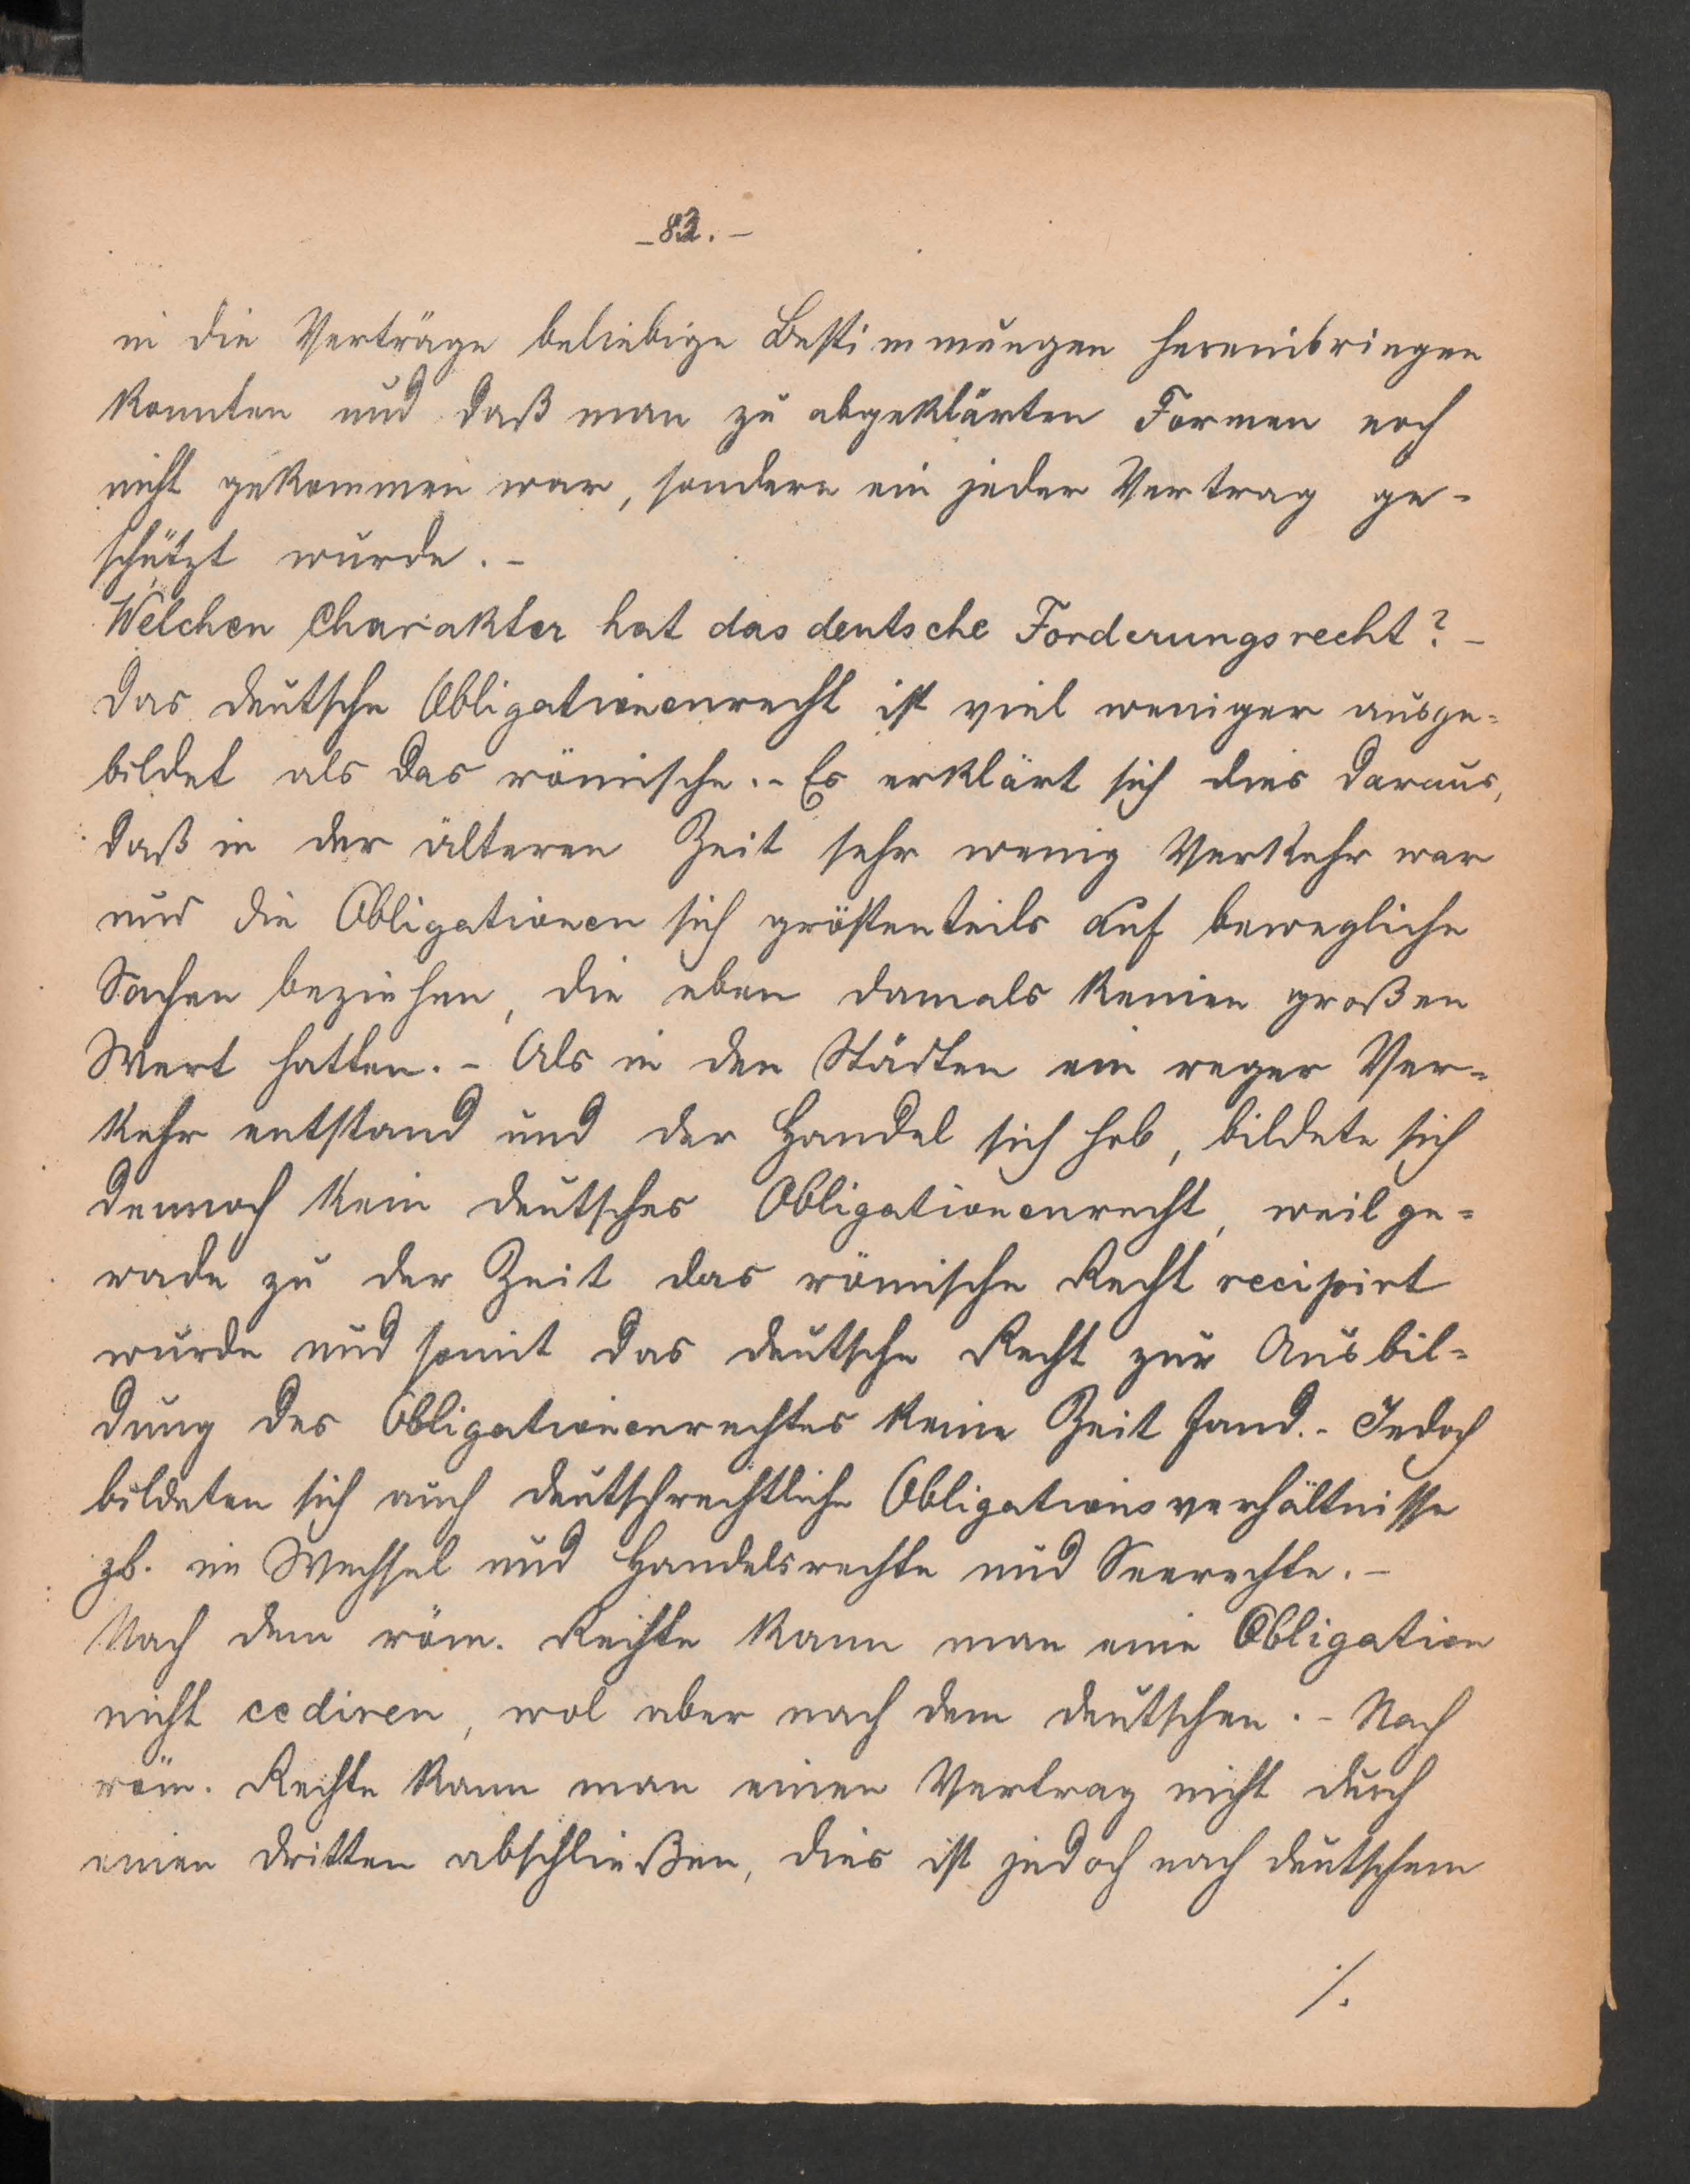 - 82. -
in die Verträge beliebige Bestimmungen hereinbringen
konnten und daß man zu abgeklärten Formen noch
nicht gekommen war, sondern ein jeder Vertrag ge-
schützt wurde. -
Welchen Charakter hat das deutsche Forderungsrecht? -
Das deutsche Obligationenrecht ist viel weniger ausge=
bildet als das römische. - Es erklärt sich dies daraus,
daß in der älteren Zeit sehr wenig Verkehr war
und die Obligationen sich größtenteils auf bewegliche
Sachen beziehen, die eben damals keinen großen
Wert hatten. - Als in den Städten ein reger Ver=
kehr entstand und der Handel sich hob, bildete sich
dennoch kein deutsches Obligationenrecht, weil ge=
rade zu der Zeit das römische Recht recipirt
wurde und somit das deutsche Recht zur Ausbil=
dung des Obligationenrechtes keine Zeit fand. - Jedoch
bildeten sich auch deutschrechtliche Obligationsverhältnisse
zb. im Wechsel und Handelsrechte und Seerechte. -
Nach dem röm. Rechte kann man eine Obligation
nicht cediren, wol aber nach dem deutschen. - Nach
röm. Rechte kann man einen Vertrag nicht durch
einen dritten abschließen, dies ist jedoch nach deutschem
./.